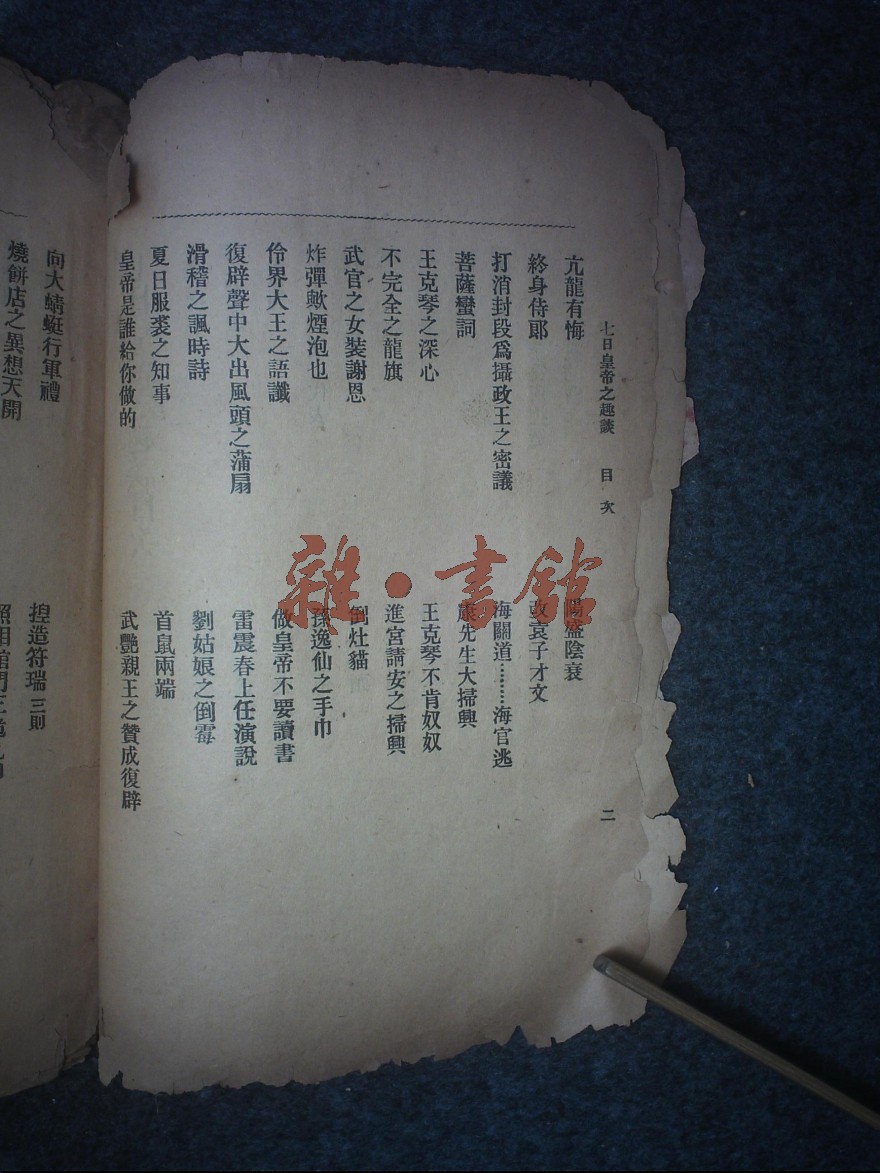 七日皇帝之趣談 目次 二
亢龍有悔 陽盛陰衰
終身侍郎 改袁子才文
打消封段爲攝政王之密議 海關道………海官逃
菩薩蠻詞 康先生大掃興
王克琴之深心 王克琴不肯奴奴
不完全之龍旗 進宮請安之掃興
武官之女裝謝恩 倒灶貓
炸彈歟煙泡也 孫逸仙之手巾
伶界大王之語讖 做皇帝不要讀書
復辟聲中大出風頭之蒲扇 雷震春上任演說
滑稽之諷時詩 劉姑娘之倒霉
夏日服裘之知事 首鼠兩端
皇帝是誰給你做的 武艷親王之贊成復辟
向大蜻蜓行軍禮 揑造符瑞 三則
燒餅店之異想天開 照相館門
雜·書館